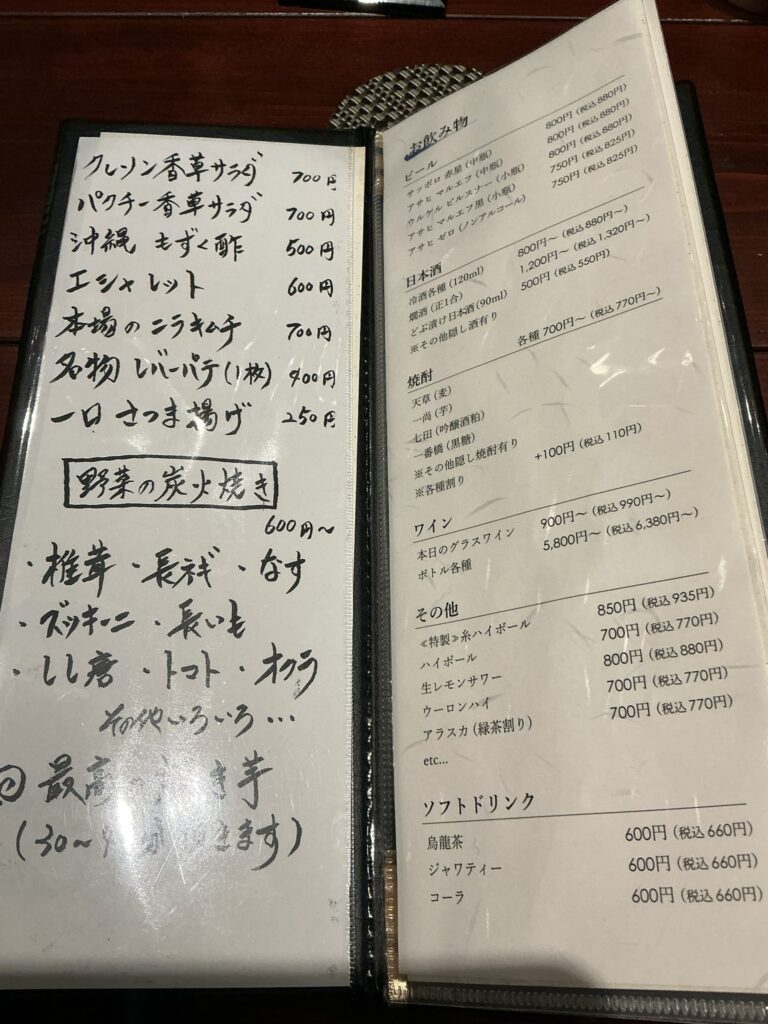 クレソン香草サラダ 700円
パクチー香草サラダ 700円
沖縄 もずく酢 500円
エシャレット 600円
本場のニラキムチ 700円
名物 レバーパテ(1枚) 400円
一口 さつま揚げ 250円
野菜の炭火焼き
600円〜
・椎茸 ・長ネギ ・なす
・ズッキーニ ・長いも
・しし唐 ・トマト ・オクラ
その他いろいろ…
最高の き芋
(30〜 きます)
お飲み物
ビール
サッポロ 赤星 (中瓶) 800円 (税込880円)
アサヒ マルエフ (中瓶) 800円 (税込880円)
ウルケル ピルスナー (小瓶) 800円 (税込880円)
アサヒ マルエフ黒 (小瓶) 750円 (税込825円)
アサヒ ゼロ (ノンアルコール) 750円 (税込825円)
日本酒
冷酒各種 (120ml) 800円〜 (税込880円〜)
燗酒 (正1合) 1,200円〜 (税込1,320円〜)
どぶ漬け日本酒 (90ml) 500円 (税込550円)
※その他隠し酒有り
焼酎 各種 700円〜 (税込770円〜)
天草 (麦)
一尚 (芋)
七田 (吟醸酒粕)
一番橋 (黒糖)
※その他隠し焼酎有り
※各種割り +100円 (税込110円)
ワイン
本日のグラスワイン 900円〜 (税込990円〜)
ボトル各種 5,800円〜 (税込6,380円〜)
その他
≪特製≫糸ハイボール 850円 (税込935円)
ハイボール 700円 (税込770円)
生レモンサワー 800円 (税込880円)
ウーロンハイ 700円 (税込770円)
アラスカ (緑茶割り) 700円 (税込770円)
etc...
ソフトドリンク
烏龍茶 600円 (税込660円)
ジャワティー 600円 (税込660円)
コーラ 600円 (税込660円)